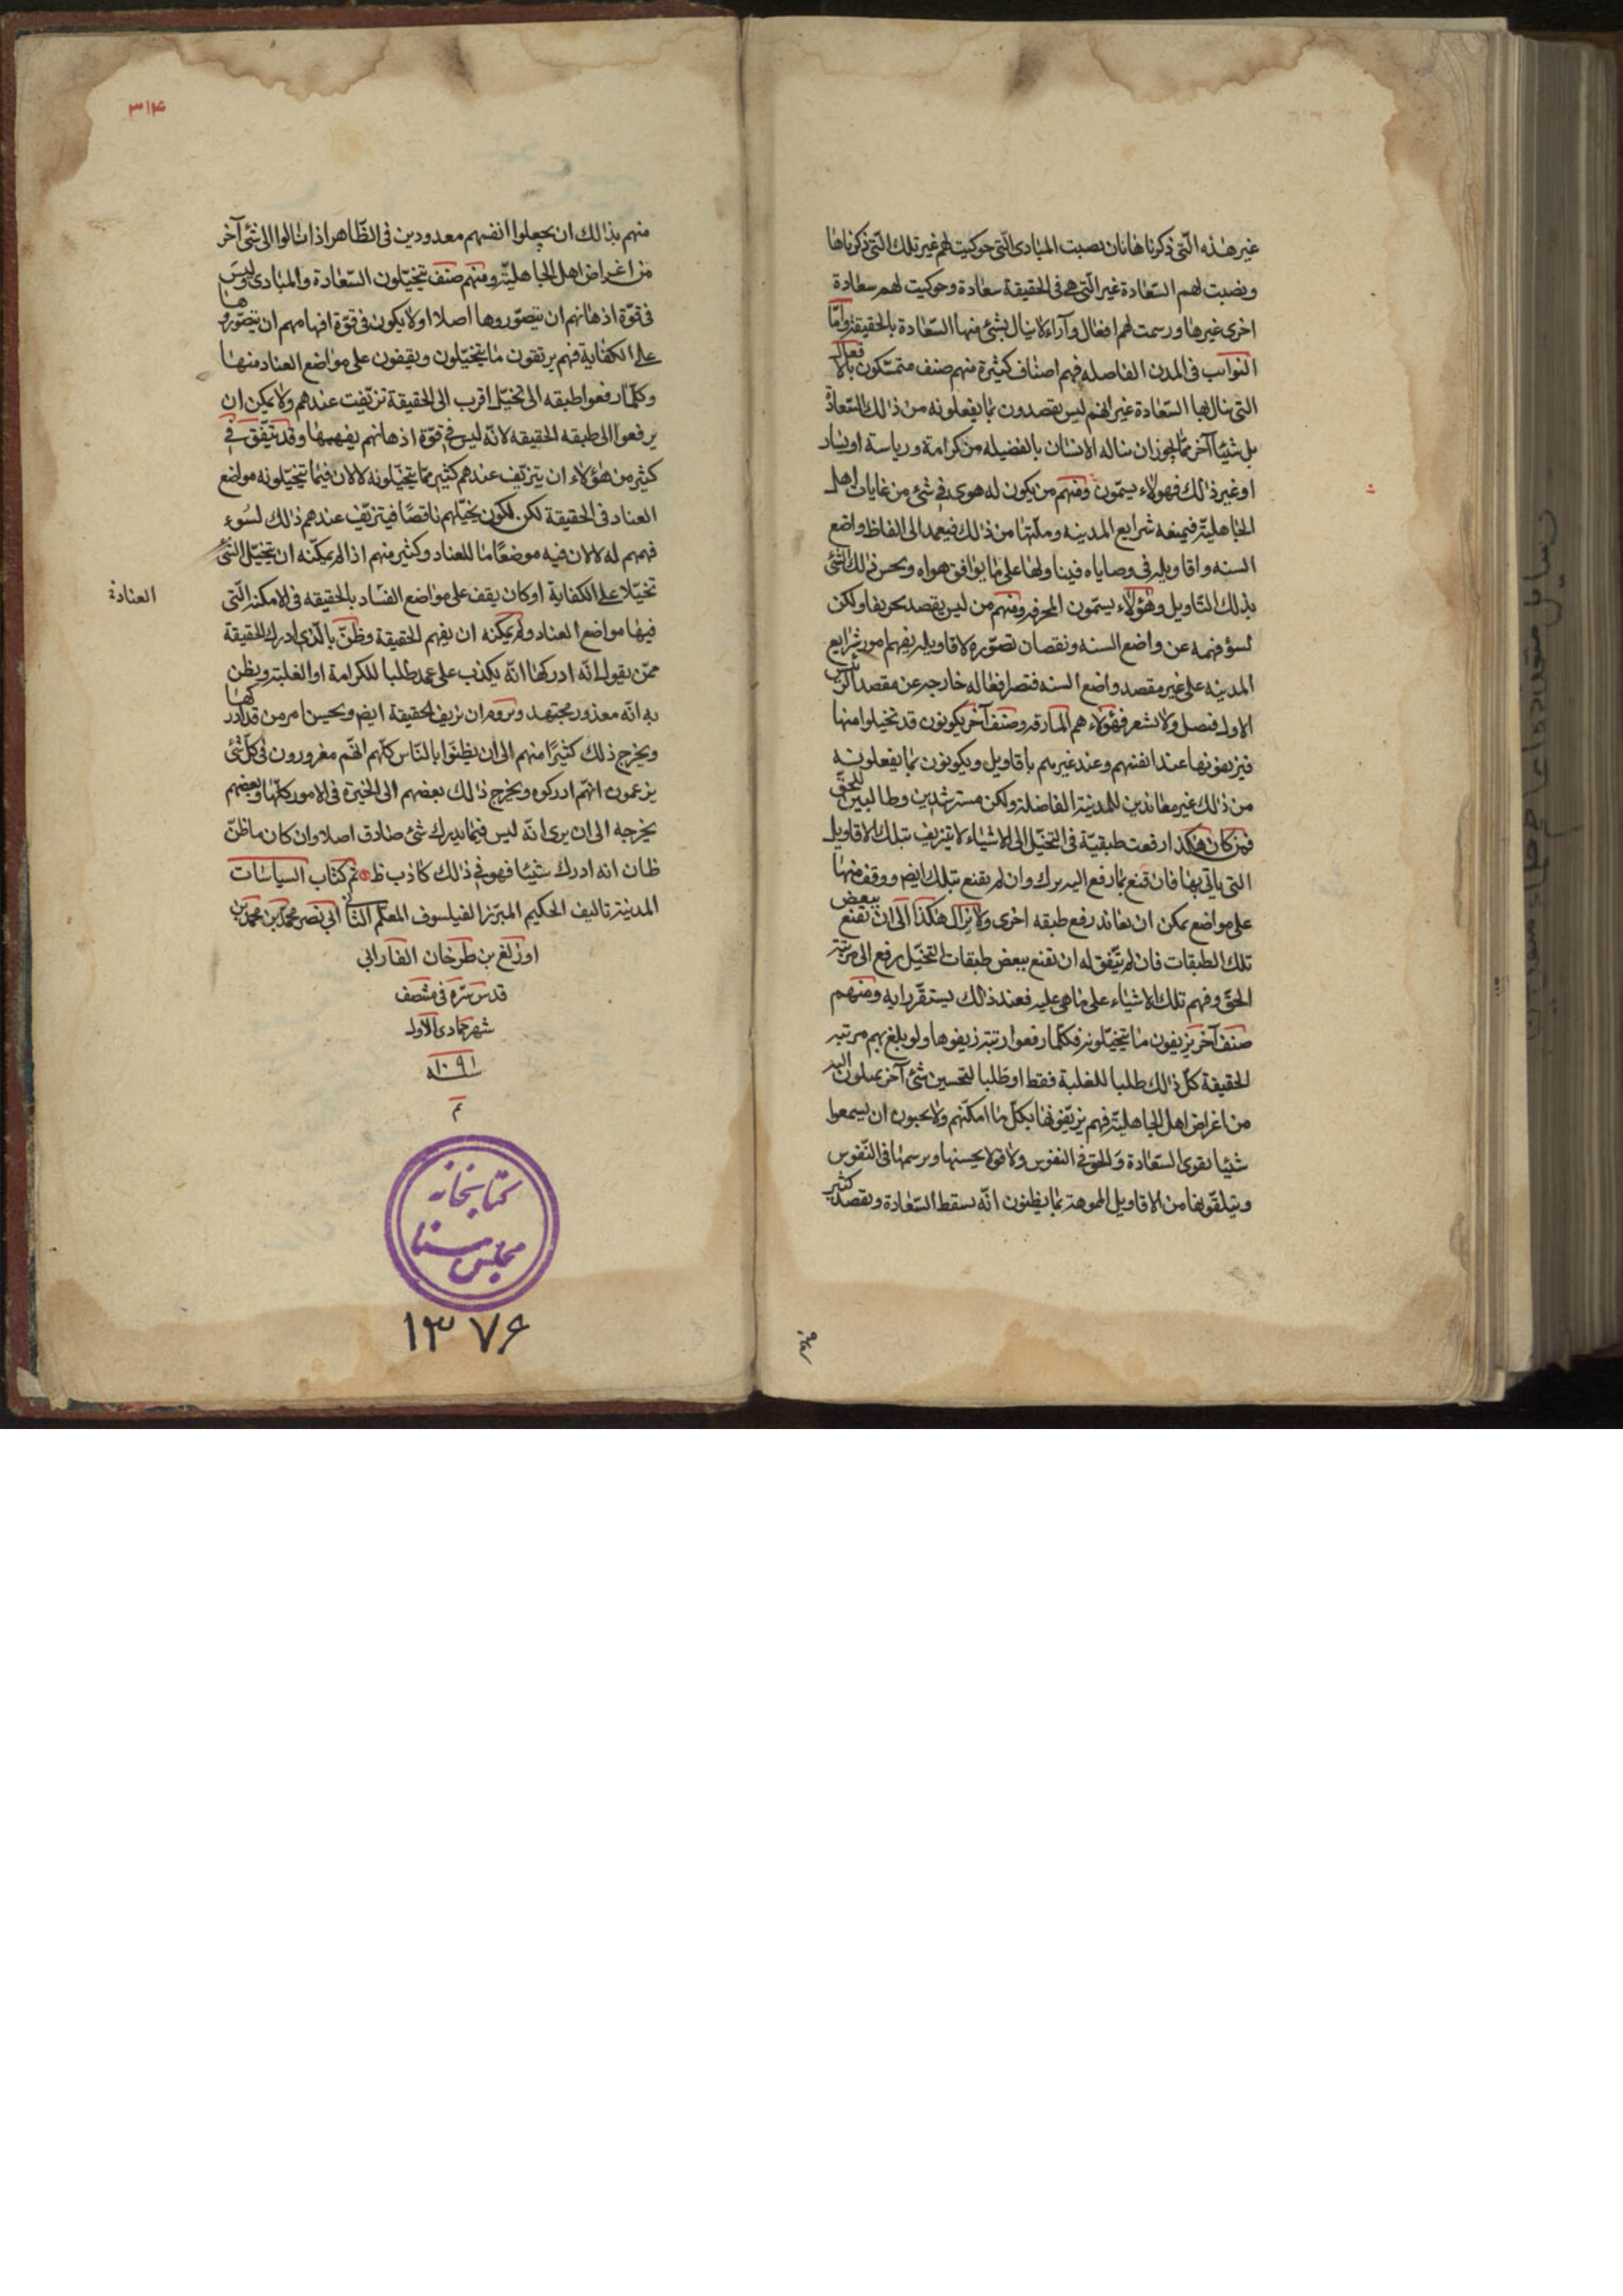 غير هذه الّتي ذكرناها فان نصبت المبادى الّتي حوكيت لهم غير تلك الّتي ذكرناها
ونصبت لهم السّعادة غير الّتي هى فى الحقيقة سعادة وحوكيت لهم سعادة
اخرى غيرها ورسمت لهم افعال وآراء لا ينال بشئ منها السّعادة بالحقيقة وامّا
النوابت فى المدن الفاضله فهم اصناف كثيرة منهم صنف متمسّكون بالافعال
التى ينال بها السّعادة غير انّهم ليس يقصدون بما يفعلونه من ذالك السّعادة
بل شيئا آخر ممّا يجوز ان يناله الانسان بالفضيله من كرامة ورياسة او يسار
او غير ذالك فهولاء يسمّون ومنهم من يكون له هوى فى شئ من غايات اهل
الجاهليّة فيمنعه شرايع المدينه وملّتها من ذالك فيعمد الى الفاظ واضع
السنه واقاويله فى وصاياه فيناولها على ما يوافق هواه ويحسن ذالك الشئ
بذلك التاويل وهؤلاء يسمّون المحرفه ومنهم من ليس يقصد تحريفا ولكن
لسؤ فهمه عن واضع السنه ونقصان تصوّره لاقاويله يفهم امور شرايع
المدينه على غير مقصد واضع السنه فتصير افعاله خارجه عن مقصد الرئيس
الاول فيضل ولا يشعر فهؤلاء هم المارقه وصنف آخر يكونون قد تخيلوا منها
فيزيفونها عند انفسهم وعند غيرهم باقاويل ويكونون بما يفعلونه
من ذلك غير معاندين للمدينة الفاضلة ولكن مسترشدين وطالبين للحقّ
فمن كان هكذا رفعت طبقته فى التخيّل الى الاشياء لا تتزيف بتلك الاقاويل
التى ياتى بها فان قنع بما رفع اليه برك وان لم يقنع بتلك ايض ووقف منها
على مواضع يمكن ان يعاند رفع طبقه اخرى ولا يزال هكذا الى ان يقنع ببعض
تلك الطبقات فان لم يتّفق له ان يقنع ببعض طبقات التخيّل رفع الى مرتبة
الحقّ وفهم تلك الاشياء على ما هى عليه فعند ذالك يستقرّ رايه ومنهم
صنف آخر يزيفون ما يتخيّلونه فكلّما رفعوا رتبة زيفوها ولو بلغ بهم مرتبه
الحقيقة كلّ ذالك طلبا للغلبة فقط او طلبا لتحسين شئ آخر يميلون اليه
من اغراض اهل الجاهليّة فهم يزيّفونها بكلّ ما امكنهم ولا يحبون ان يسمعوا
شيئا يقوى السّعادة والحق فى النفوس ولا قولا يحسنها ويرسمها فى النّفوس
ويتلقّونها من الاقاويل المموهة بما يظنون انّه يسقط السّعادة ويقصد كثير
٣١۴
منهم بذالك ان يجعلوا انفسهم معذورين فى الظّاهر اذا مالوا الى شئ آخر
من اغراض اهل الجاهليّة ومنهم صنف يتخيّلون السّعادة والمبادى وليس
فى قوّة اذهانهم ان يتصوّروها اصلا او لا يكون فى قوّة افهامهم ان يتصوّروها
على الكفاية فهم يزيّفون ما يتخيّلون ويقفون على مواضع العناد منها
وكلّما رفعوا طبقه الى تخيّل اقرب الى الحقيقة تزيّفت عندهم ولا يمكن ان
يرفعوا الى طبقه الحقيقه لانّه ليس فى قوّة اذهانهم يفهمها وقد يتّفق فى
كثير من هؤلاء ان يتزيّف عندهم كثير ممّا يتخيّلونه لا لان فيما يتخيّلونه مواضع
العناد فى الحقيقة لكن لكون تخيّلهم ناقصًا فيتزيّف عندهم ذالك لسُوء
فهمهم له لا لان فيه موضعًا ما للعناد وكثير منهم اذا لم يمكّنه ان يتخيّل الشّئ
تخيّلا على الكفاية او كان يقف على مواضع الفساد بالحقيقه فى الامكنة الّتى
العنادة
فيها مواضع العناد ولم يمكنه ان يفهم الحقيقة وظنّ بالّذى ادرك الحقيقة
ممّن يقول انّه ادركها انّه يكذب على عمد طلبا للكرامة او الغلبة ويظن
به انّه معذور مجتهد ويروم ان يزيف الحقيقة ايض ويحسن امر من قد ادركها
ويخرج ذلك كثيرًا منهم الى ان يظنّوا بالنّاس كلّهم انّهم مغرورون فى كلّ شئ
يزعمون انّهم ادركوه ويخرج ذالك بعضهم الى الحيرة فى الامور كلّها وبعضهم
يخرجه الى ان يرى انّه ليس فيما يدرك شئ صادق اصلا وان كان ما ظنّ
ظان انه ادرك شيئا فهو فى ذالك كاذب ظ تم كتاب السياسات
المدنية تاليف الحكيم المبرّز الفيلسوف المعلّم الثانى ابى نصر محمّد بن محمّد بن
اوزلغ بن طرخان الفارابى
قدس سرّه فى منتصف
شهر جمادى الاول
سنه ١٠٩١
تم
كتابخانه
مجلس سنا
١٣٧۶